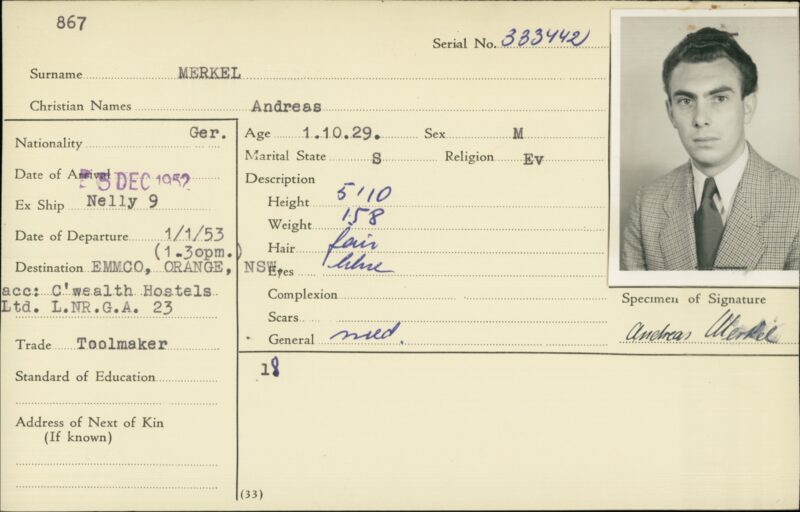 867
Serial No. 333442
Surname MERKEL
Christian Names Andreas
Nationality Ger.
Date of Arrival DEC 1952
Ex Ship Nelly 9
Date of Departure 1/1/53
(1.30pm.)
Destination EMMCO, ORANGE, NSW,
acc: C'wealth Hostels
Ltd. L.NR.G.A. 23
Trade Toolmaker
Standard of Education
Address of Next of Kin
(If known)
Age 1.10.29. Sex M
Marital State S Religion Ev
Description
Height 5'10
Weight 158
Hair fair
Eyes blue
Complexion
Scars
General med.
18
(33)
Specimen of Signature
Andreas Merkel